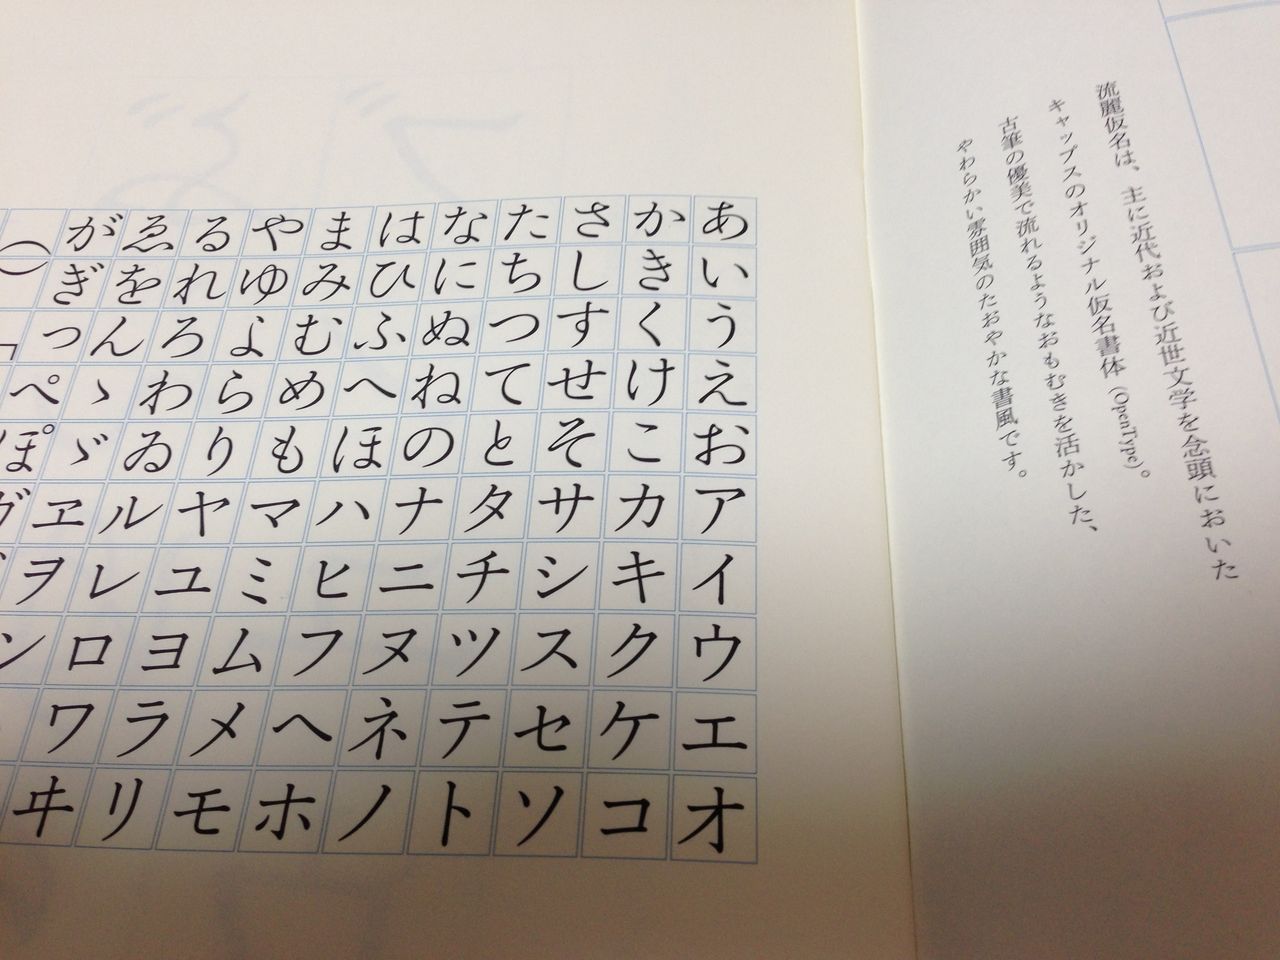 流麗仮名は、主に近代および近世文学を念頭においた
キャップスのオリジナル仮名書体（OpenType）。
古筆の優美で流れるようなおもむきを活かした、
やわらかい雰囲気のたおやかな書風です。
あいうえおアイウエオ
かきくけこカキクケコ
さしすせそサシスセソ
たちつてとタチツテト
なにぬねのナニヌネノ
はひふへほハヒフヘホ
まみむめもマミムメモ
やゆよらりヤユヨラリ
るれろわゐルレロワヰ
ゑをんゝゞヱヲン
がぎっぺぽ
（「